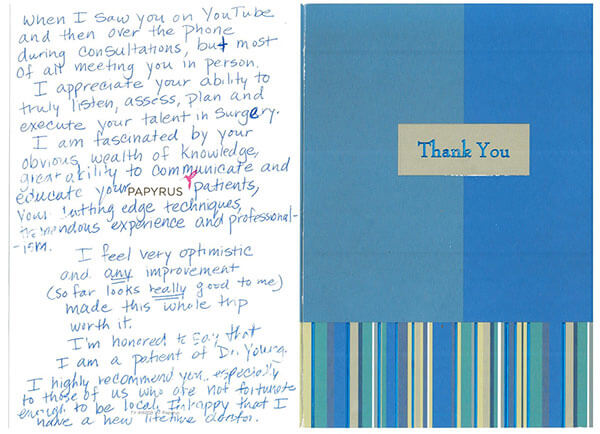 When I saw you on YouTube
and then over the phone
during consultations, but most
of all meeting you in person.
I appreciate your ability to
truly listen, assess, plan and
execute your talent in surgery.
I am fascinated by your
obvious wealth of knowledge,
great ability to communicate and
educate your PAPYRUS patients,
your cutting edge techniques,
tremendous experience and professional-
-ism.
I feel very optimistic
and any improvement
(so far looks really good to me)
made this whole trip
worth it.
I'm honored to say that
I am a patient of Dr. Young.
I highly recommend you especially
to those of us who are not fortunate
enough to be local. I'm happy that I
have a new lifetime doctor.
Thank You